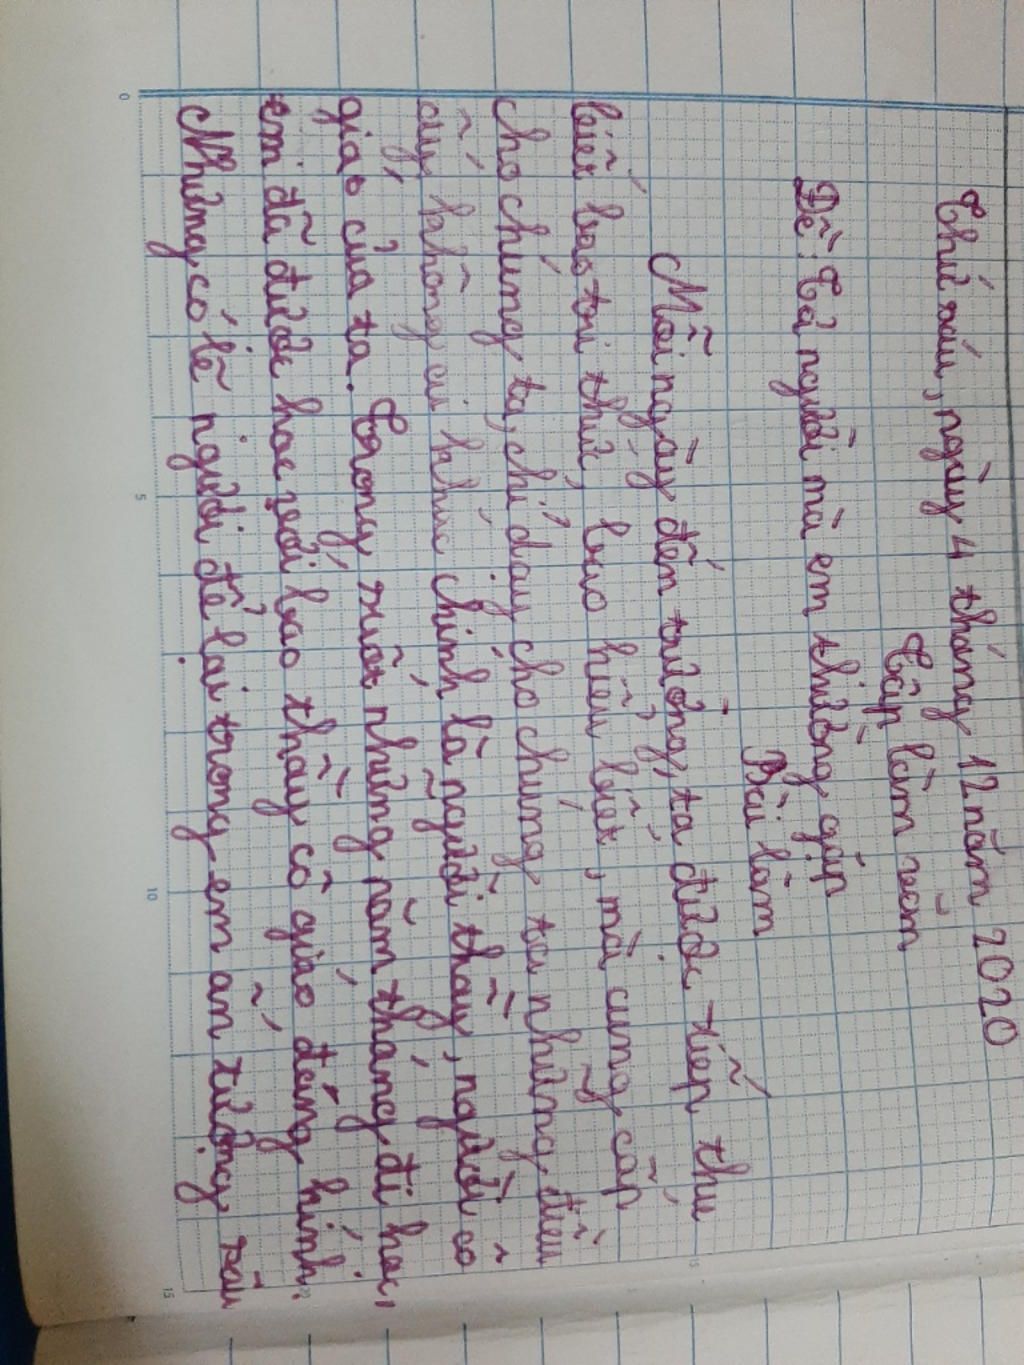 Thứ sáu, ngày 4 tháng 12 năm 2020
Tập làm văn
Đề: Tả người mà em thường gặp
Bài làm
Mỗi ngày đến trường, ta được tiếp thu
biết bao tri thức, bao hiểu biết, mà cung cấp
cho chúng ta, chỉ dạy cho chúng ta những điều
ấy không ai khác chính là người thầy, người cô
giáo của ta. Trong suốt những năm tháng đi học,
em đã được học với bao thầy cô giáo đáng kính.
Nhưng có lẽ người để lại trong em ấn tượng sâu
0
5
10
15